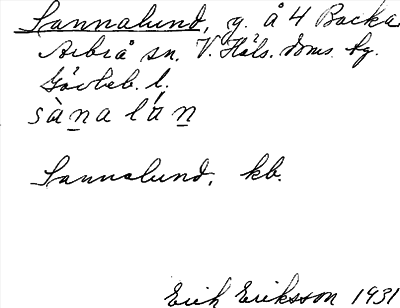 Sannalund, g. å 4 Backa
Arbrå sn. V. Häls. doms. tg.
Gävleb. l.
sàṉa lá́ṉ
Sannalund, kb.
Erik Eriksson 1931